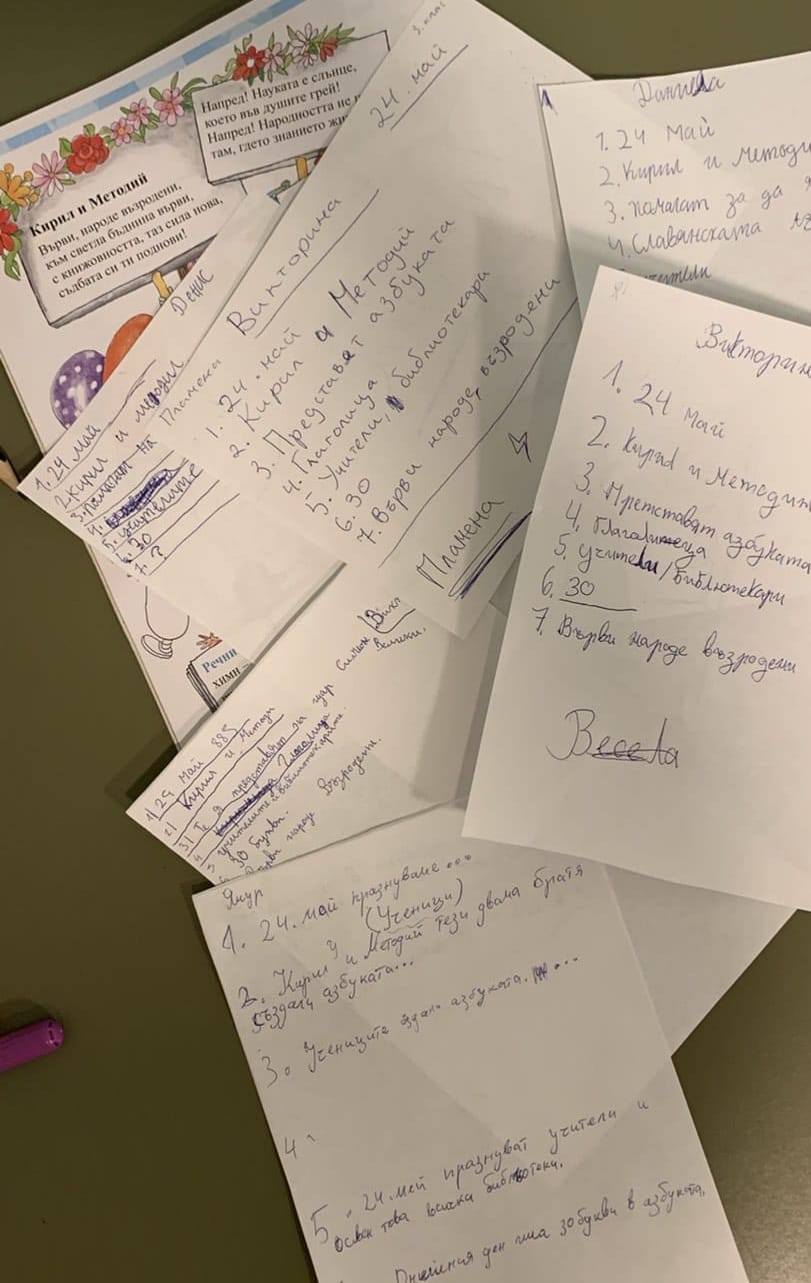 Кирил и Методий
Върви, народе възродени,
към светла бъднина върви,
с книжовността, таз сила нова,
съдбата си ти поднови!
Напред! Науката е слънце,
което във душите грей!
Напред! Народността не
там, гдето знанието
Речни
ХИМН
3. клас
24. май
Викторина
1. 24. май
2. Кирил и Методий
3. Представят азбуката
4. Глаголица
5. Учители, библиотекари
6. 30
7. Върви народе, възродени
Пламена
Денис
1. 24 май
2. Кирил и методий
3. помагат на Пламена
4.
5. учителите
6. 30
7. ?
Даниела
1. 24 Май
2. Кирил и Методи
3. Помагат за да
4. Славянската
Викторин
1. 24 май
2. Кирил и Методий
3. Претставят азбуката
4. Глаголица
5. Учители/Библютекари
6. 30
7. Върви народе възродени
Весела
1/ 24 Май 885
2/ Кирил и Методи
3/ Те я представят на цар Симеон Велики.
4 Глаголица
5 учителите и библиотекарите.
30 букви.
Върви народе възродени.
1. 24. май празнуваме...
(Ученици)
2. Кирил и Методий тези двама братя
създали азбуката...
3. Учениците азбуката. ...
4
5. 24. мей празнуват учители и
Освен това всички библотеки.
ден има 30 букви в азбуката.